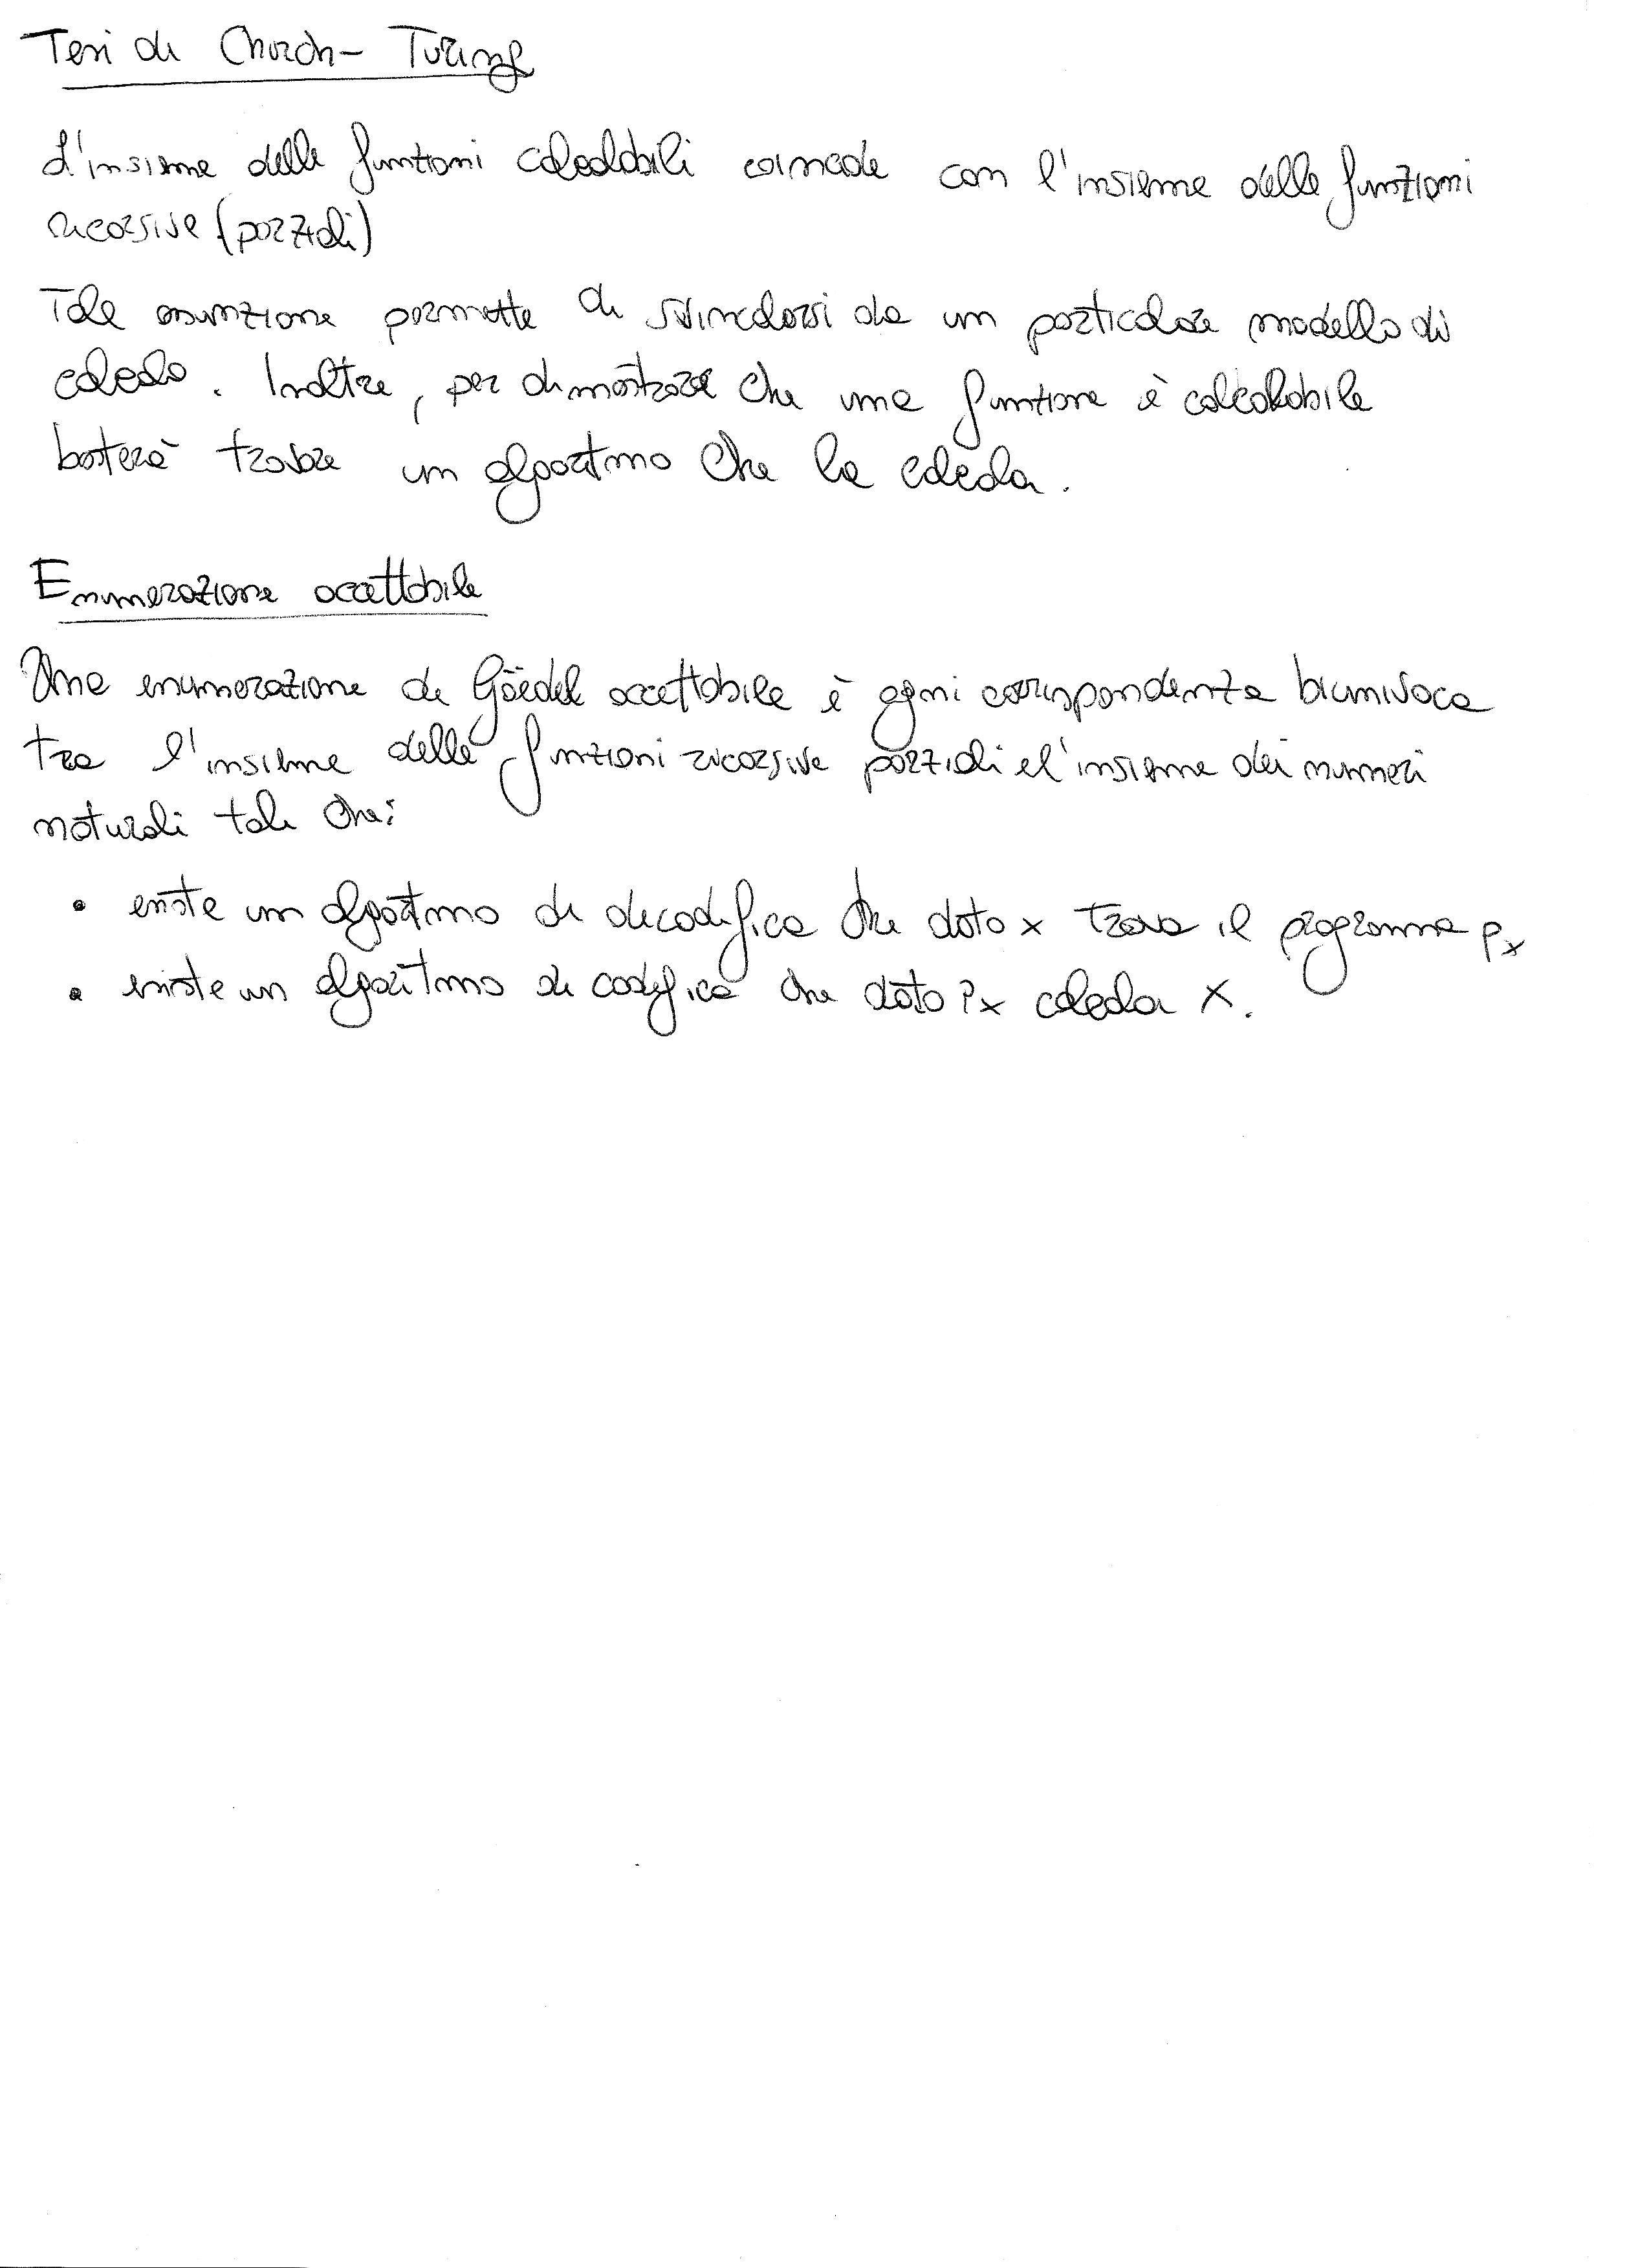 Tesi di Church-Turing
L'insieme delle funzioni calcolabili coincide con l'insieme delle funzioni
ricorsive (parziali)
Tale assunzione permette di svincolarsi da un particolare modello di
calcolo. Inoltre, per dimostrare che una funzione è calcolabile
basterà trovare un algoritmo che la calcola.
Enumerazione accettabile
Una enumerazione di Göedel accettabile è ogni corrispondenza biunivoca
tra l'insieme delle funzioni ricorsive parziali e l'insieme dei numeri
naturali tale che:
• esiste un algoritmo di decodifica che dato x trova il programma Px
• esiste un algoritmo di codifica che dato Px calcola x.